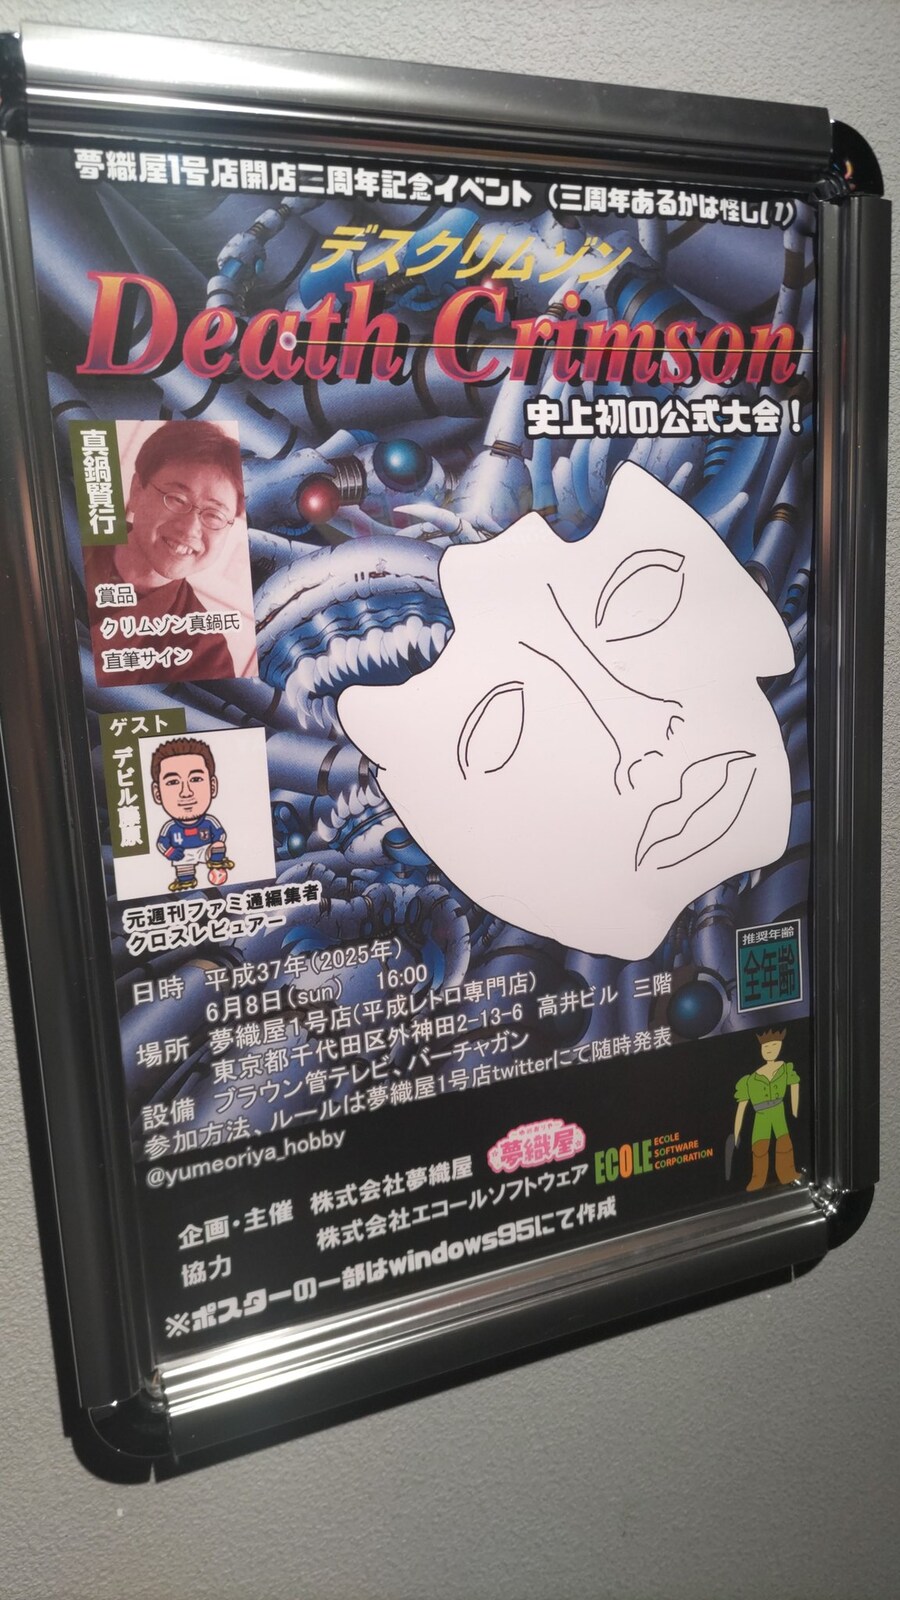 夢織屋1号店開店二周年記念イベント（三周年あるかは怪しい）
デスクリムゾン
Death Crimson
史上初の公式大会！
真鍋賢行
賞品
クリムゾン真鍋氏
直筆サイン
ゲスト
デビル藤原
4
元週刊ファミ通編集者
クロスレビュアー
推奨年齢
全年齢
日時 平成37年(2025年)
6月8日(sun) 16:00
場所 夢織屋1号店(平成レトロ専門店)
東京都千代田区外神田2-13-6 高井ビル 三階
設備 ブラウン管テレビ、バーチャガン
参加方法、ルールは夢織屋1号店twitterにて随時発表
@yumeoriya_hobby
企画・主催 株式会社夢織屋
夢織屋
協力 株式会社エコールソフトウェア
ECOLE
ECOLE
SOFTWARE
CORPORATION
※ポスターの一部はwindows95にて作成